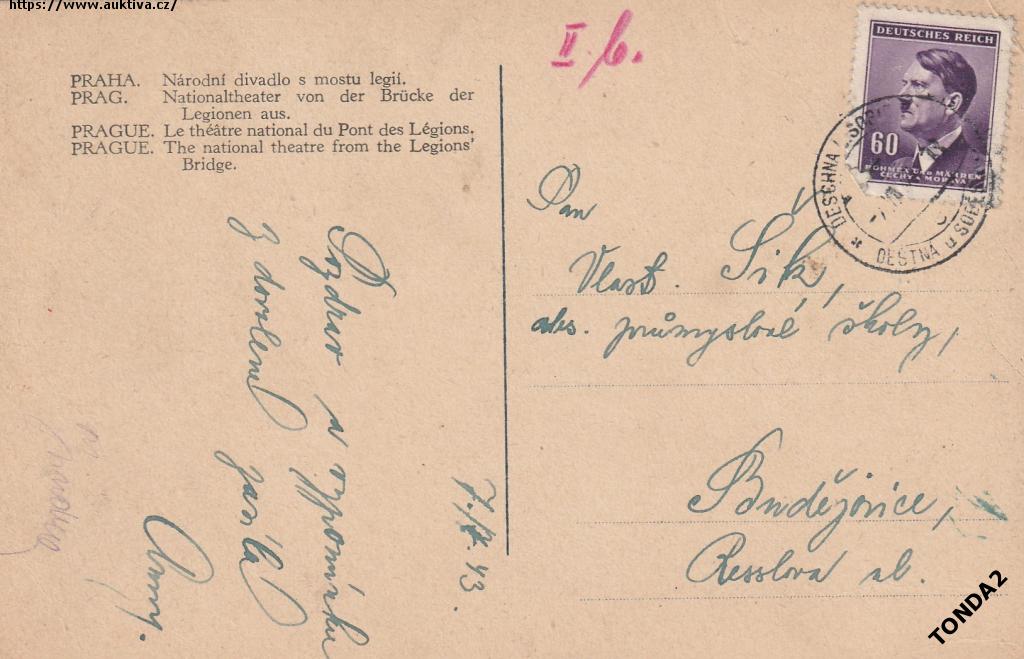 https://www.auktiva.cz/
II./6.
PRAHA. Národní divadlo s mostu legií.
PRAG. Nationaltheater von der Brücke der
Legionen aus.
PRAGUE. Le théâtre national du Pont des Légions.
PRAGUE. The national theatre from the Legions'
Bridge.
DEUTSCHES REICH
60
BÖHMEN UND MÄHREN
ČECHY A MORAVA
* DESCHNA
DEŠTNÁ u SOBĚ
Pozdrav a vzpomínku
z dovolené
7./X. 43.
Pan
Vlast. Šik,
abs. průmyslové školy,
Budějovice,
Resslova ul.
TONDA2